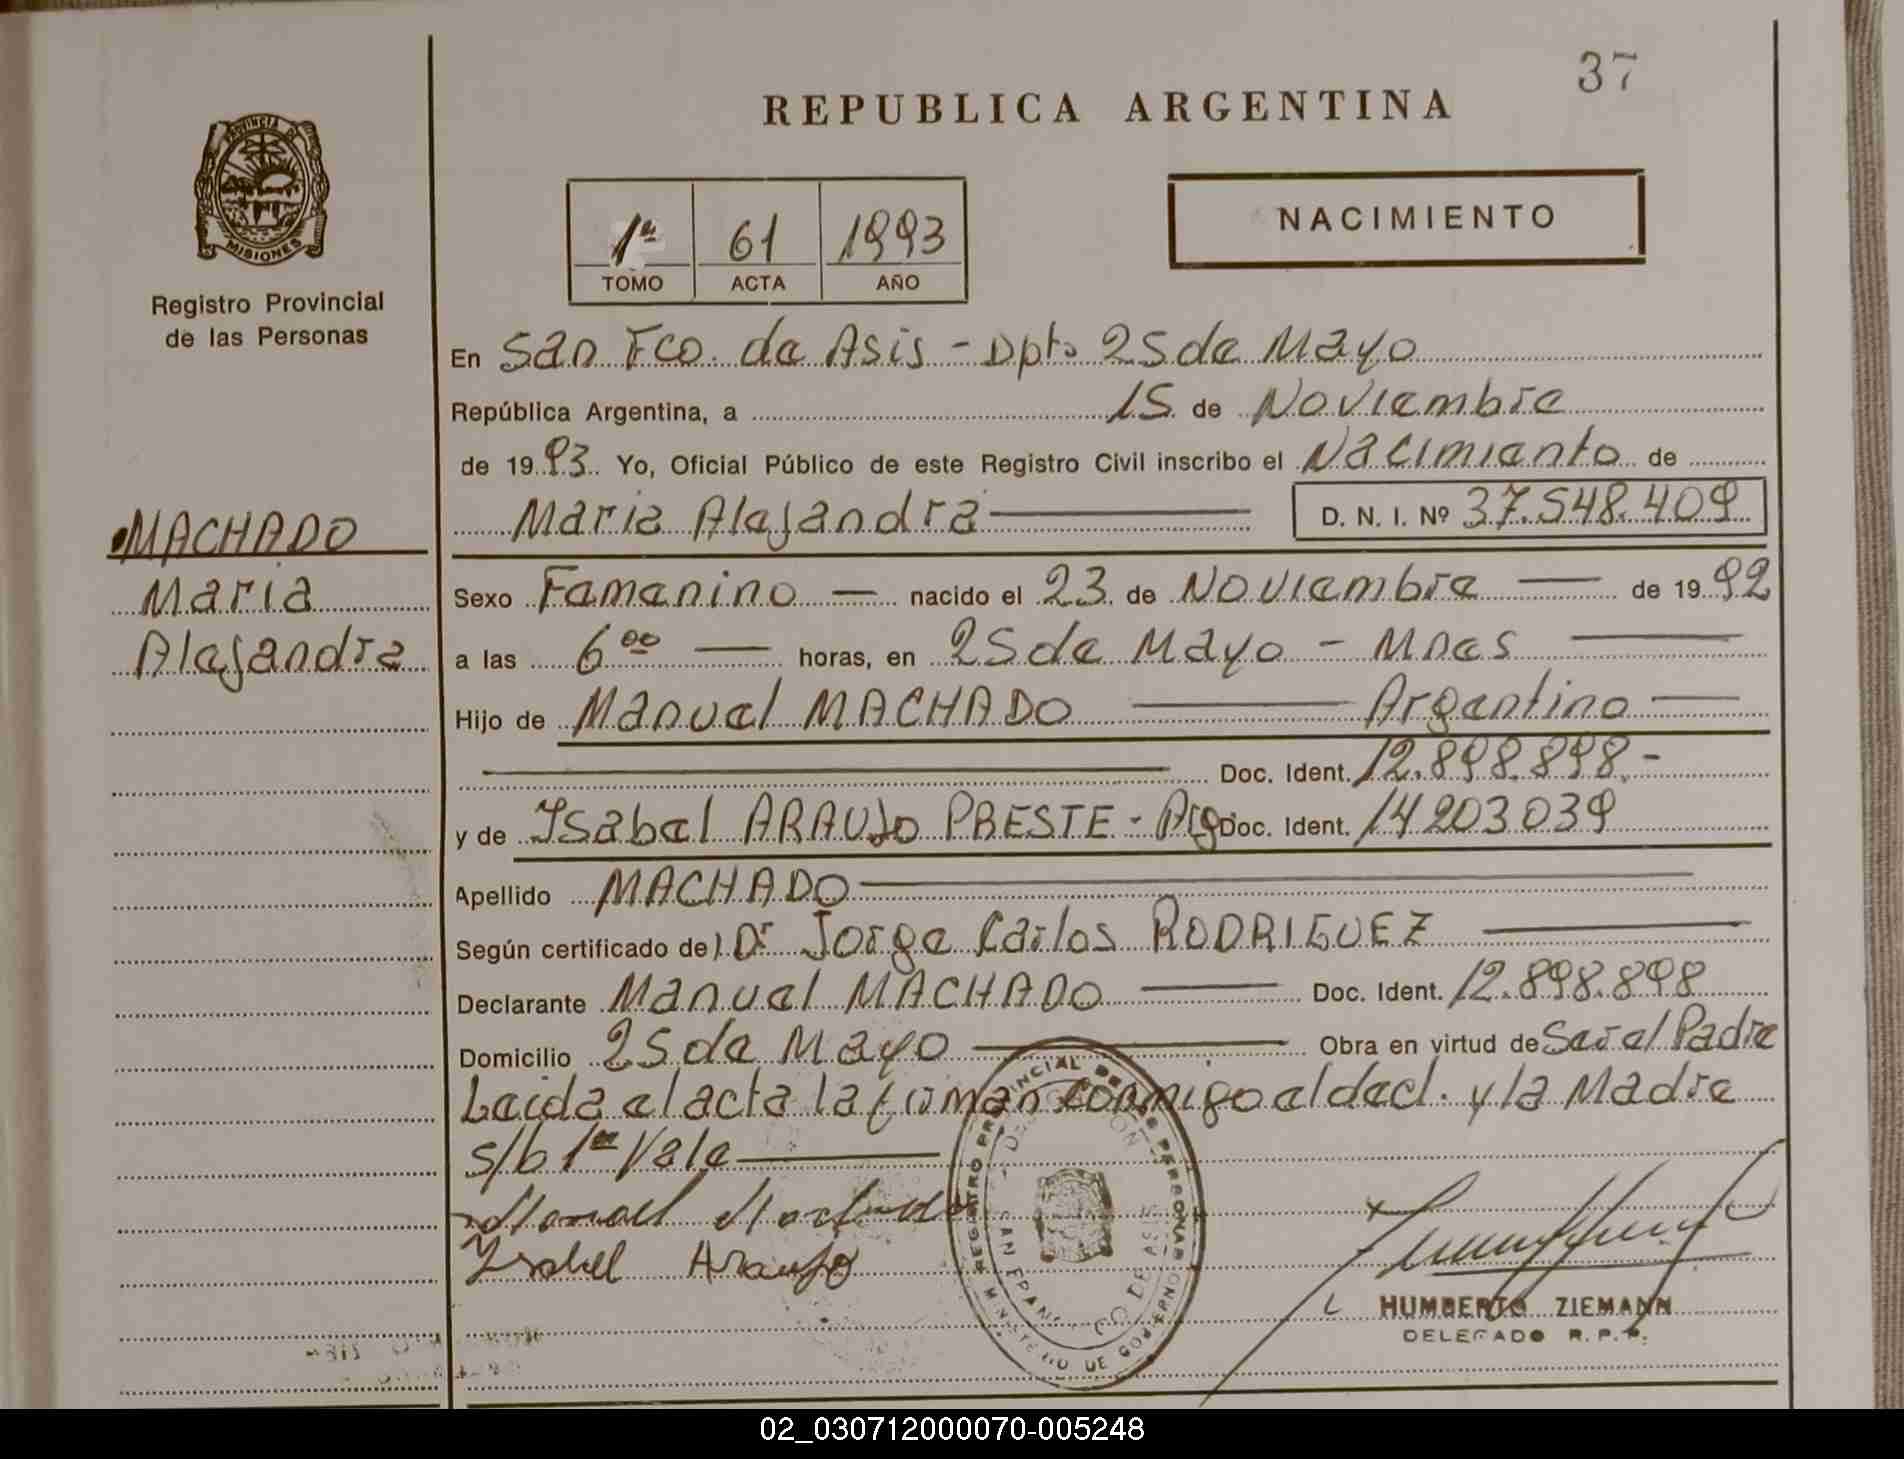 37
REPUBLICA ARGENTINA
PROVINCIA DE
MISIONES
Registro Provincial
de las Personas
1º 61 1993
TOMO ACTA AÑO
NACIMIENTO
En San Fco. de Asis - Dpto 25 de Mayo
República Argentina, a 15 de Noviembre
de 1993. Yo, Oficial Público de este Registro Civil inscribo el Nacimiento de
Maria Alejandra D. N. I. Nº 37.548.409
MACHADO
Maria
Alejandra
Sexo Femenino — nacido el 23 de Noviembre — de 1992
a las 6ºº — horas, en 25 de Mayo - Mnes
Hijo de Manuel MACHADO — Argentino —
Doc. Ident. 12.898.898.-
y de Isabel ARAUJO PRESTE - Arg. Doc. Ident. 14203039
Apellido MACHADO
Según certificado de) Dr Jorge Carlos RODRIGUEZ
Declarante Manuel MACHADO — Doc. Ident. 12.898.898
Domicilio 25 de Mayo — Obra en virtud de Ser el Padre
Leida el acta la firman conmigo el decl. y la Madre
s/b 1º Vale
Manuel Machado
Ysabel Araujo
REGISTRO PROVINCIAL DE LAS PERSONAS
MINISTERIO DE GOBIERNO
HUMBERTO ZIEMANN
DELEGADO R.P.P.
02_030712000070-005248